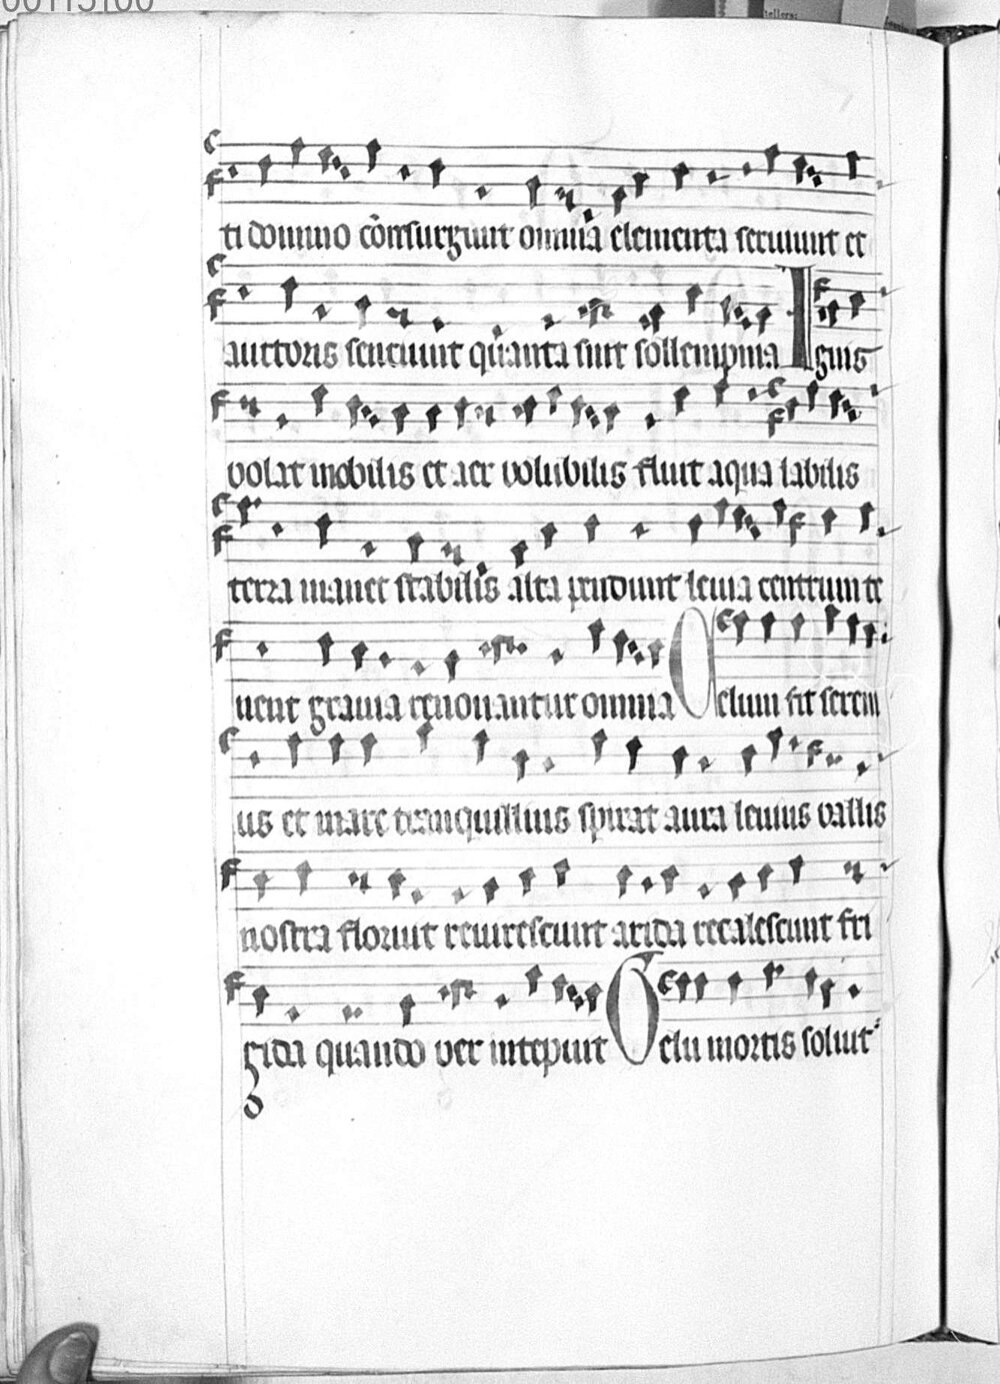 ti domino consurgunt omnia elementa seruiunt et
auctoris sentiunt quanta sint sollempnia Ignis
uolat mobilis et aer volubilis fluit aqua labilis
terra manet stabilis alta petunt leuia centrum te
nent grauia renouantur omnia Celum fit seren
us et mare tranquillius spirat aura leuius vallis
nostra floruit reuirescunt arida recalescunt fri
gida quando ver intepuit Gelu mortis soluit